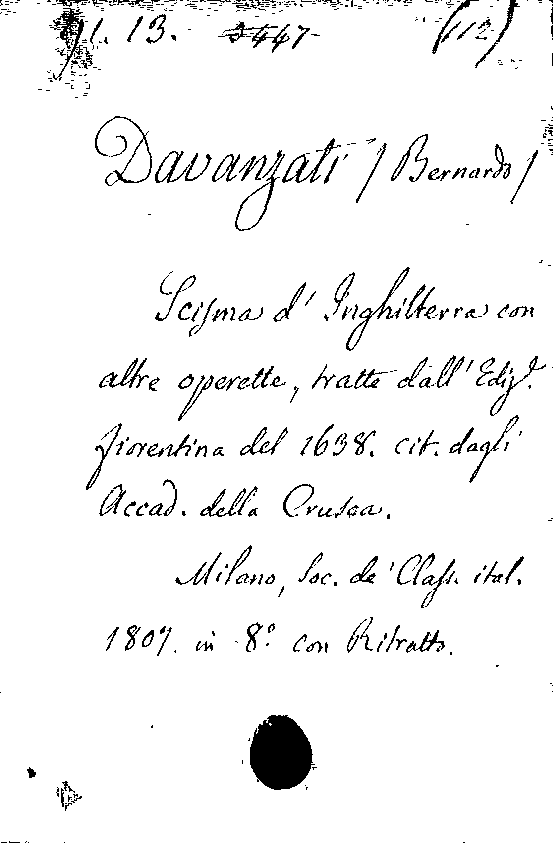 1. 13. 3447 (112)
Davanzati / Bernardo /
Scisma d' Inghilterra con
altre operette, tratte dall' Ediz.
fiorentina del 1638. cit. dagli
Accad. della Crusca.
Milano, Soc. de' Class. ital.
1807. in 8.º con Ritratto.